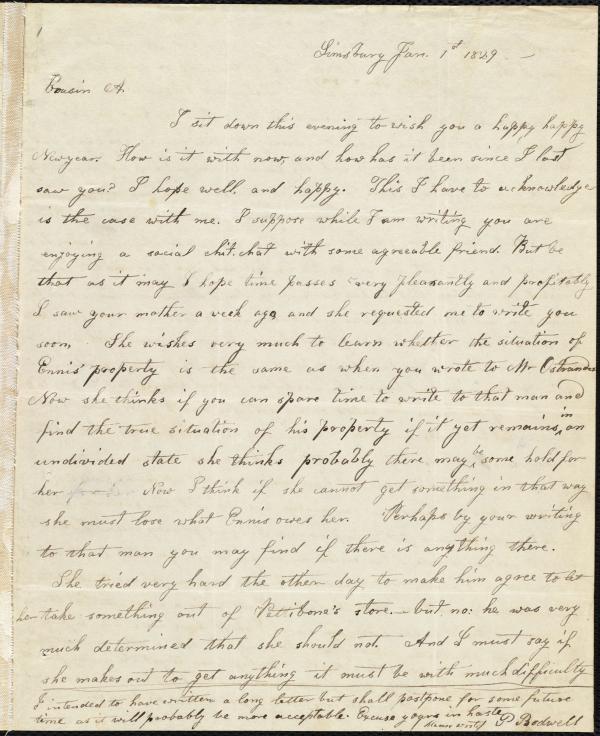 1
Simsbury Jan. 1st 1849
Cousin A.
I sit down this evening to wish you a happy, happy
Newyear. How is it with now, and how has it been since I last
saw you? I hope well, and happy. This I have to acknowledge
is the case with me. I suppose while I am writing you are
enjoying a social chit.chat with some agreeable friend. But be
that as it may I hope time passes very pleasantly and profitably
I saw your mother a week ago and she requested me to write you
soon. She wishes very much to learn whether the situation of
Ennis' property is the same as when you wrote to Mr Ostrander
Now she thinks if you can spare time to write to that man and
find the true situation of his property if it yet remains in an
undivided state she thinks probably there may be some hold for
her Now I think if she cannot get something in that way
she must lose what Ennis owes her. Perhaps by your writing
to that man you may find if there is anything there.
She tried very hard the other day to make him agree to let
her take something out of Pettibone's store - but no: he was very
much determined that she should not. And I must say if
she makes out to get anything it must be with much difficulty
I intended to have written a long letter but shall postpone for some future
time as it will probably be more acceptable. Excuse yours in haste
Please write P Bodwell